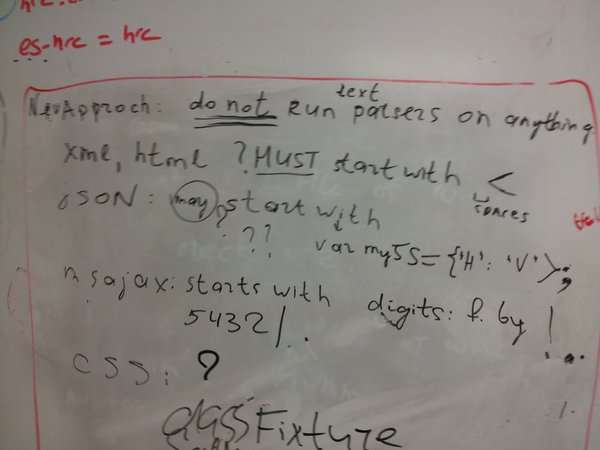 es-hrc = hrc
New Approch: do not Run text parsers on anything
xml, html ? MUST start with <
spaces
JSON: may start with
??
var myJS={'H': 'V'};
msajax: starts with
5432|..
digits: f. by |
CSS: ?
classFixture